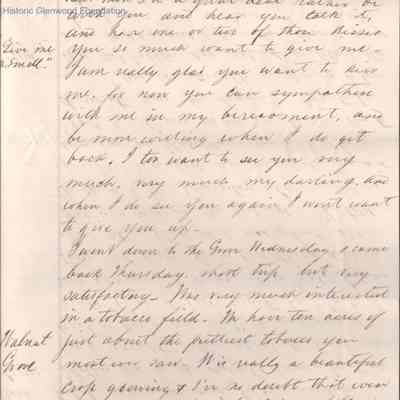 Historic Glenwood Foundation
you and hear you talk it,
and have one or two of those kisses
"Give me
a smell"
you so much want to give me.
I am really glad you want to kiss
me, for now you can sympathise
with me in my bereavement, and
be more willing when I do get
back. I too want to see you very
much, very much my darling, and
when I do see you again I won't want
to give you up.
I went down to the Grove Wednesday & came
back Thursday, short trip, but very
satisfactory. Was very much interested
in a tobacco field. We have ten acres of
Walnut
Grove
just about the prettiest tobacco you
most ever saw. It is really a beautiful
crop growing & I've no doubt that even